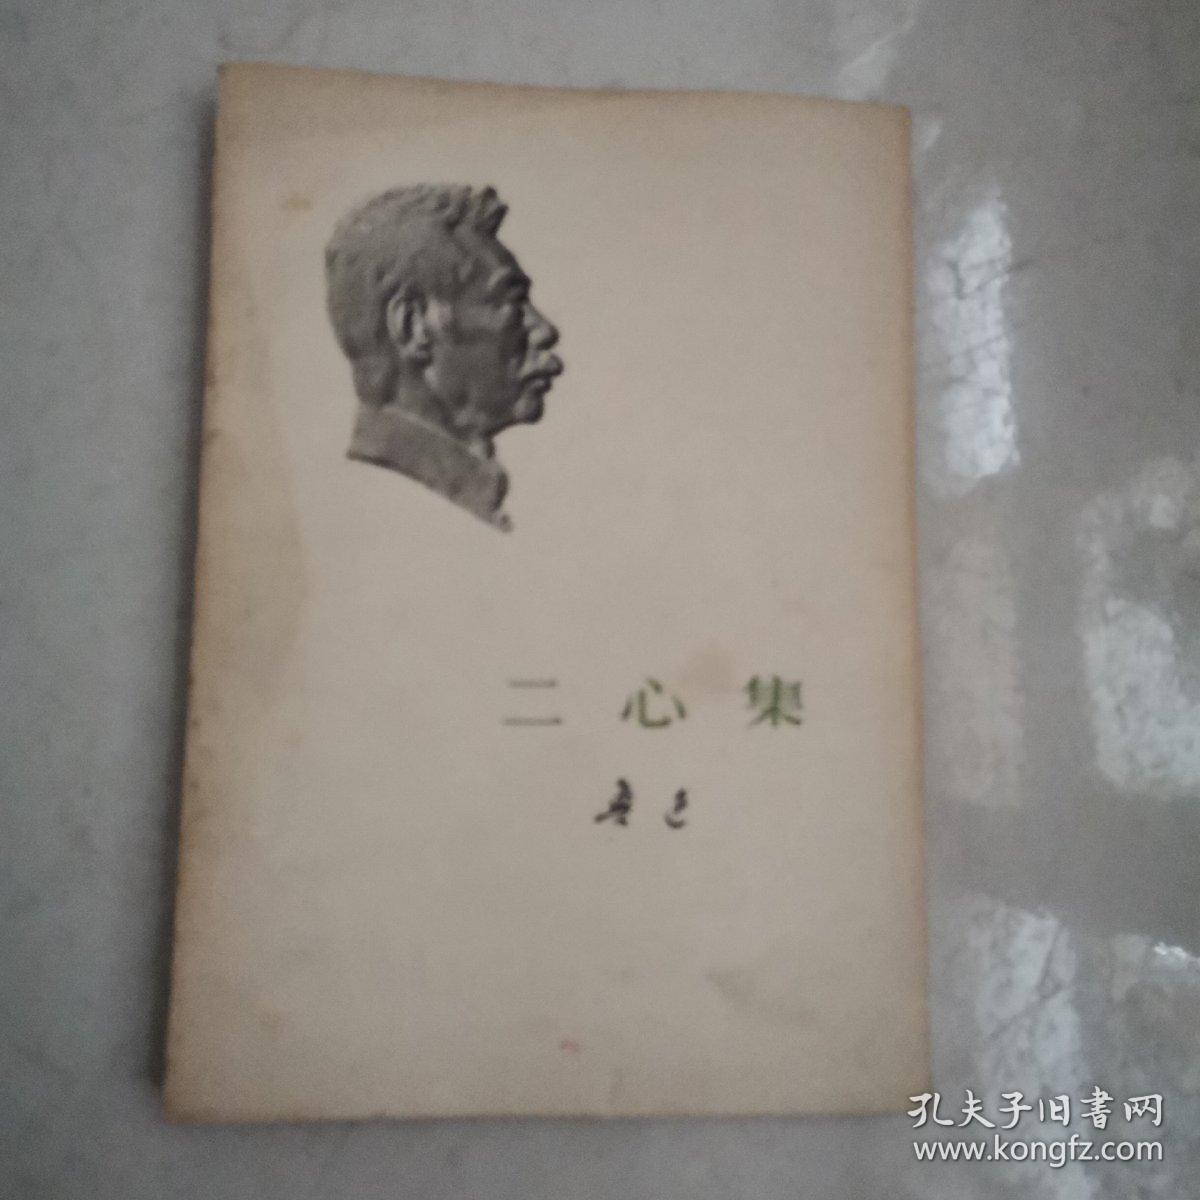 二心集
鲁迅
孔夫子旧書网
www.kongfz.com